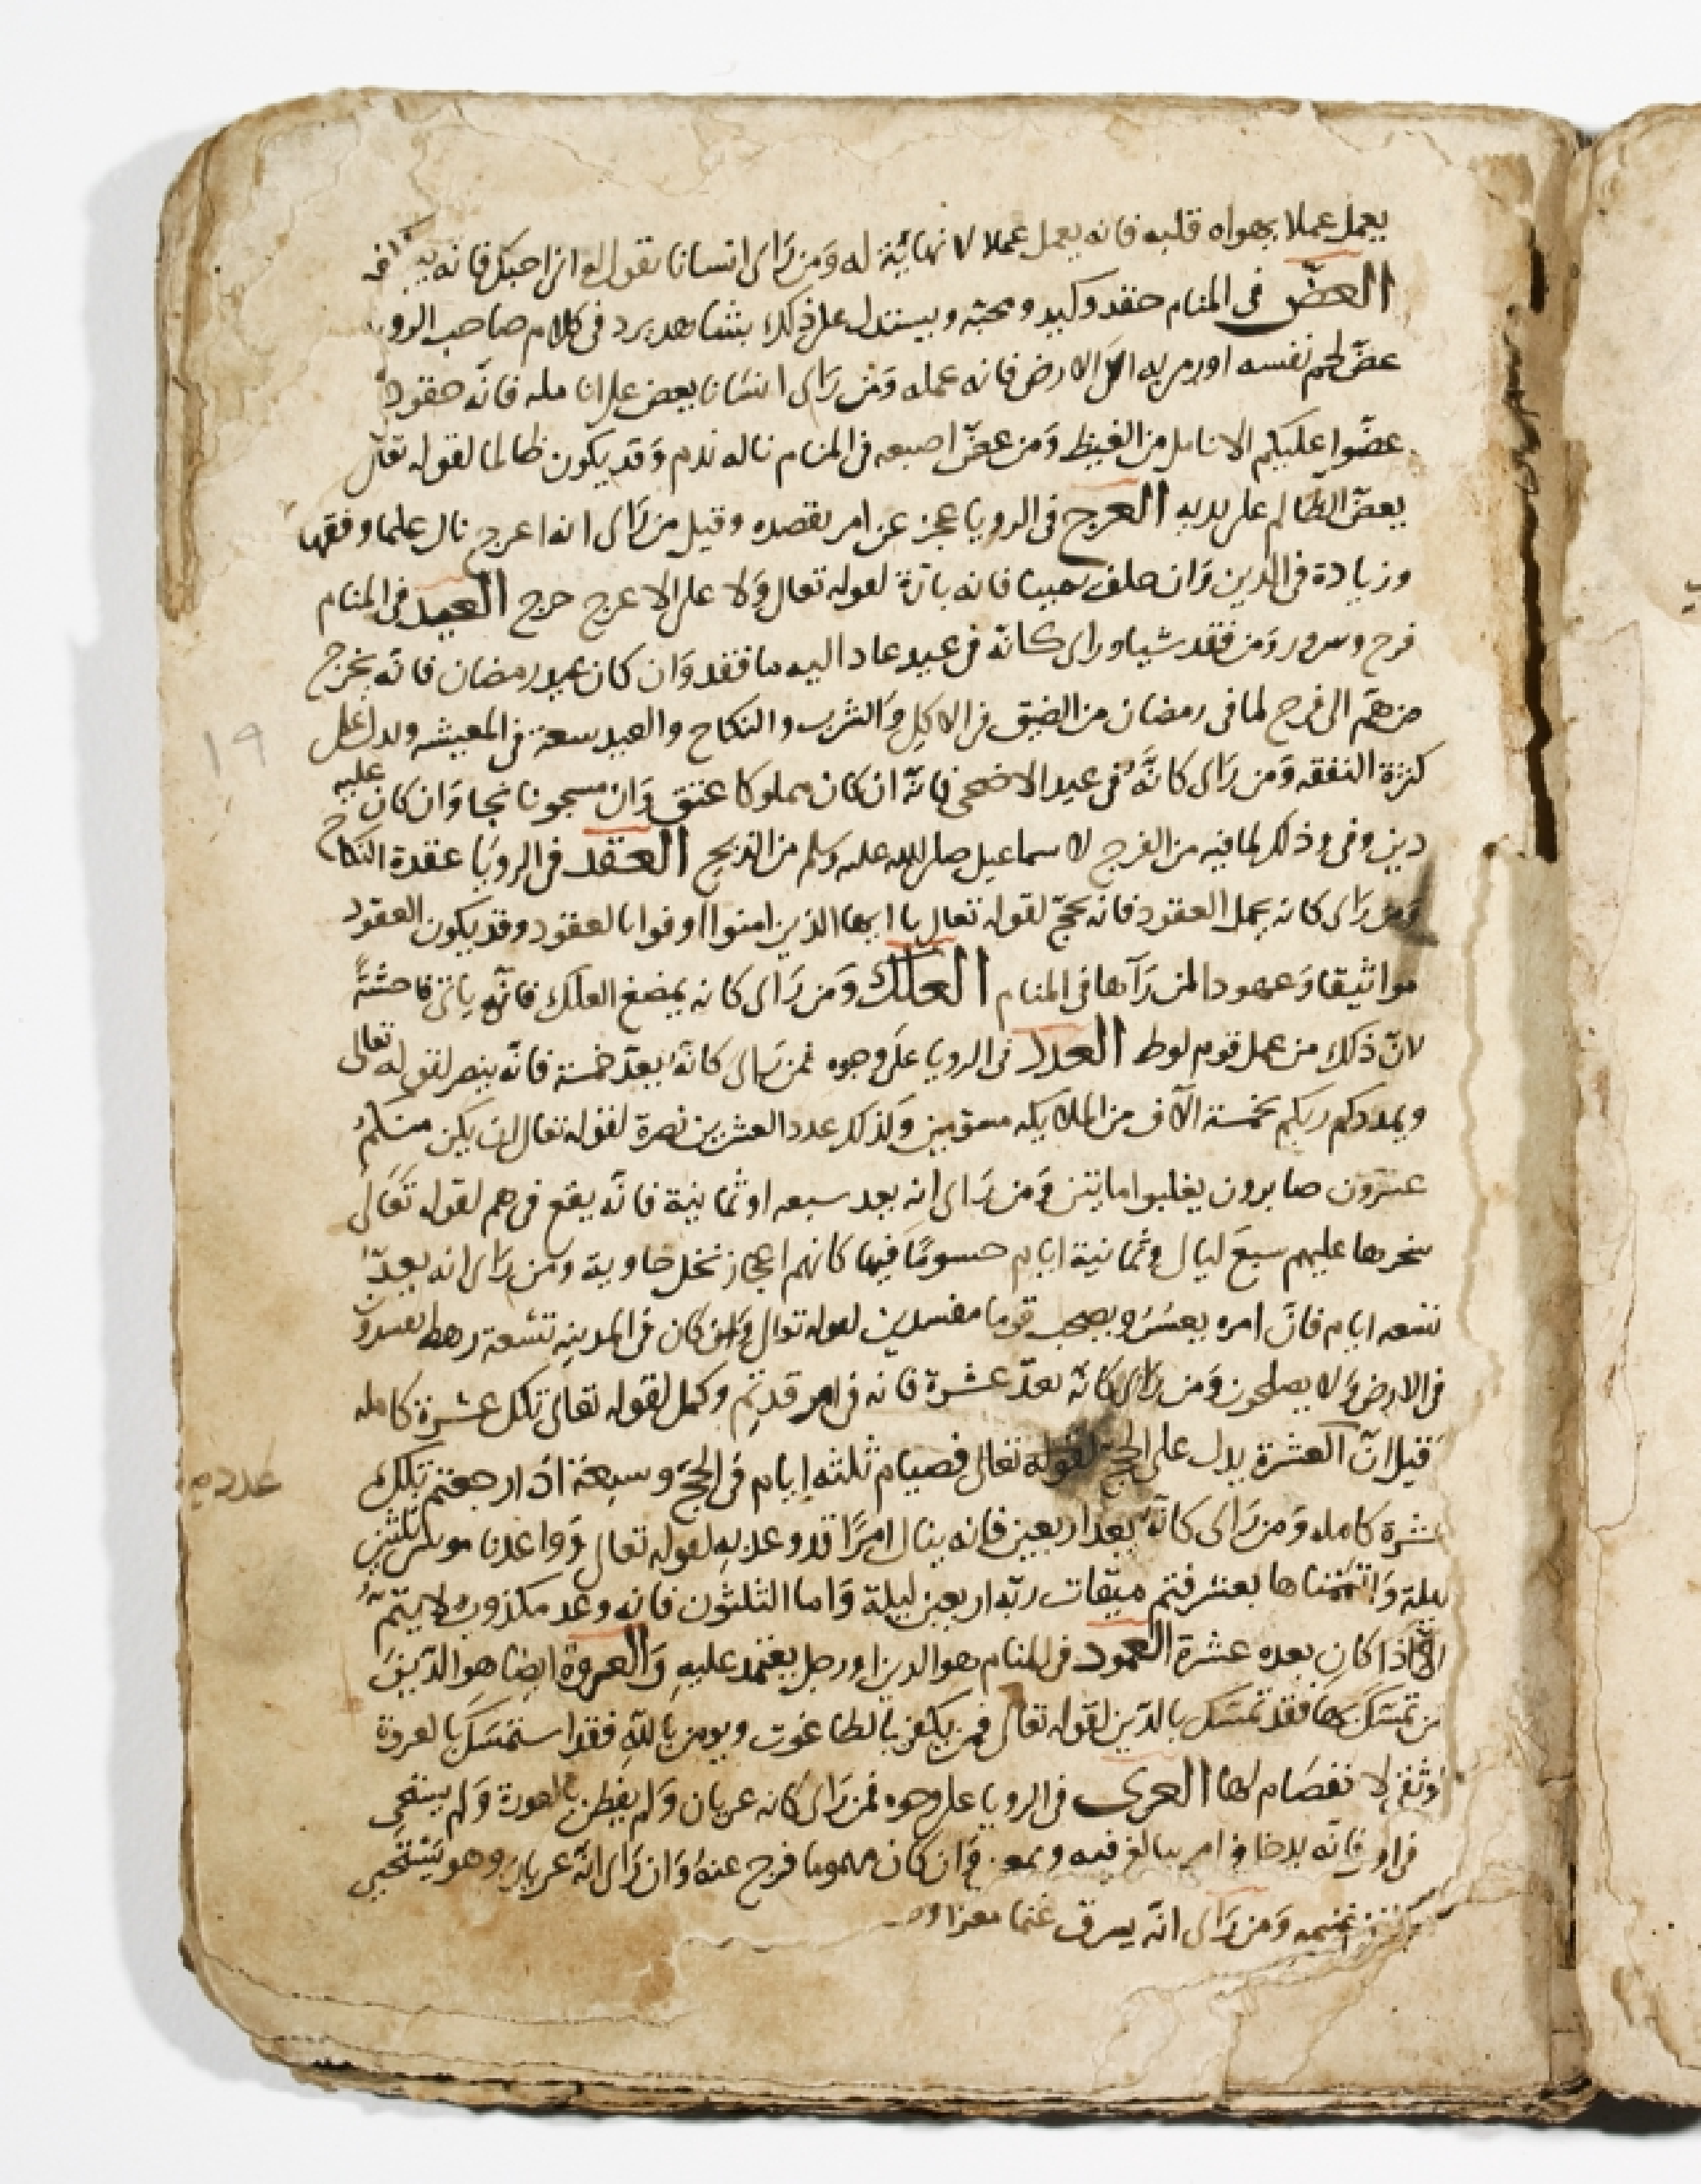 يعمل عملا يهواه قلبه فانه يعمل عملا لا نهاية له وَمن رَاى انسانا يقول له انى احبك فانه
العضّ فى المنام حقد وكيد ومحبّة ويستدل على ذلك بشاهد يرد فى كلام صاحب الرو
عضّ لحم نفسه او رمى به الى الارض فانه عمله وَمن رَاى انسَانا يعض على انامله فانّه حقود
عضّوا عليكم الانامل من الغيظ وَمن عضّ اصبعه فى المنام ناله ندم وَقد يكون ظالما لقوله تعالى
يعضّ الظّالم على يديه العرج فى الرويا عجز عن امر يقصده وقيل من رَاى انه اعرج نال علما وفقها
وزيادة فى الدين وَان حلف يمينا فانه بارّة لقوله تعالى وَلا على الاعرج حرج العيد فى المنام
فرح وسرور وَمن فقد شيا وراى كانّه فى عيد عاد اليه ما فقد وَان كان عيد رمضان فانّه يخرج
من همّ الى فرح لما فى رمضان من الضيق فى الاكل وَالشرب والنكاح والعيد سعة فى المعيشه ويدل على
كثرة النفقه وَمن رَاى كانَّه فى عيد الاضحى فانّه ان كان مملوكا عتق وَان مسجونا نجا وَان كان عليه
دين وفى وذلك لما فيه من الفرج لاسماعيل صلى الله عليه وسلم من الذبح العقد فى الرويَا عقدة النكاح
وَمن رَاى كانه يحمل العقود فانه يحجّ لقوله تعالى يا ايها الذين امنوا اوفوا بالعقود وقد يكون العقود
مواثيقا وَعهودا لمن رَآها فى المنام العلك وَمن رَاى كانه يمضغ العلك فانّه ياتى فاحشةً
لانّ ذلك من عمل قوم لوط العدد فى الرويا علَى وجوه فمن رَاى كانّه يَعدّ خمسة فانّه ينصر لقوله تعالى
ويمددكم ربكم بخمسة الآف من الملايكه مسوّمين وَلذلك عدد العشرين نصرة لقوله تعالى ان يكن منكمُ
عشرون صابرون يغلبوا مايتين وَمن رَاى انه يعد سبعه او ثمانية فانّه يقع فى هم لقوله تَعَالى
سخرها عليهم سبعَ ليال وَثمانية ايام حسومًا فيها كانهم اعجاز نخل خاوية ومَن رَاى انه يعدّ
تسعه ايام فانّ امره يعسُر وَيصحب قوما مفسدين لقوله تعالى وَكان فى المدينه تسْعة رهط يفسدون
فى الارض وَلا يصلحون وَمن رَاى كانّه يعدّ عشرة فانه فى امر قد تم وكمل لقوله تعالى تلك عشرة كامله
قيل انّ العشرة يدل على الحج لقوله تعالى فصيام ثلثه ايام فى الحجّ وسبعَة اذا رجعتم تلك
عشرة كامله وَمن رَاى كانّه يعد اربعين فانه ينال امرًا قد وعد به لقوله تعالى وَواعدنا موسى ثلثين
ليلة وَاتممناها بعشر فتم ميقات ربّه اربعين ليلة وَاما الثلثون فانه وعد مكذوب لا يتمّ
الّا اذا كان بعده عشرة العمود فى المنام هو الدين او رجل يعتمد عليه وَالعروة ايضا هو الدّين
من تمسّك بها فقد تمسّك بالدّين لقوله تعالى فمن يكفر بالطاغوت ويومن باللّه فقد استمسَك بالعروة
الوثقى لا نفصَام لها العرى فى الرويا على وجوه فمن رَاى كانه عريان وَلم يفطن بالعورة وَلم يستحى
فانّه يدخل فى امر يبالغ فيه وان كان مهموما فرج عنهُ وَان رَاى انّه عريان وهو يَسْتحيى
وَمن رَاى انّه يسرق غنما معزا او
عدد
١٩